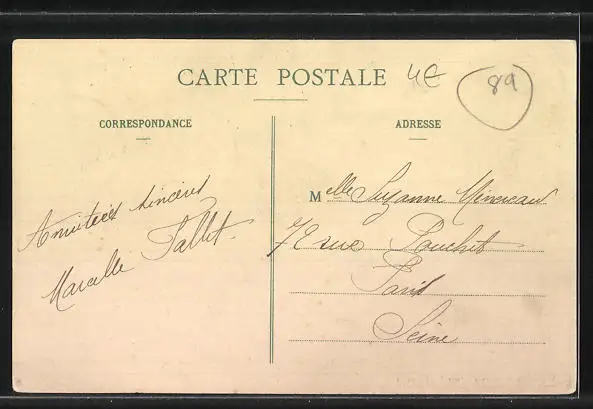 CARTE POSTALE 4€ 89
CORRESPONDANCE
ADRESSE
Amitiées sincères
Marcelle Tallet.
Melle Suzanne
72 rue Pouchet
Paris
Seine